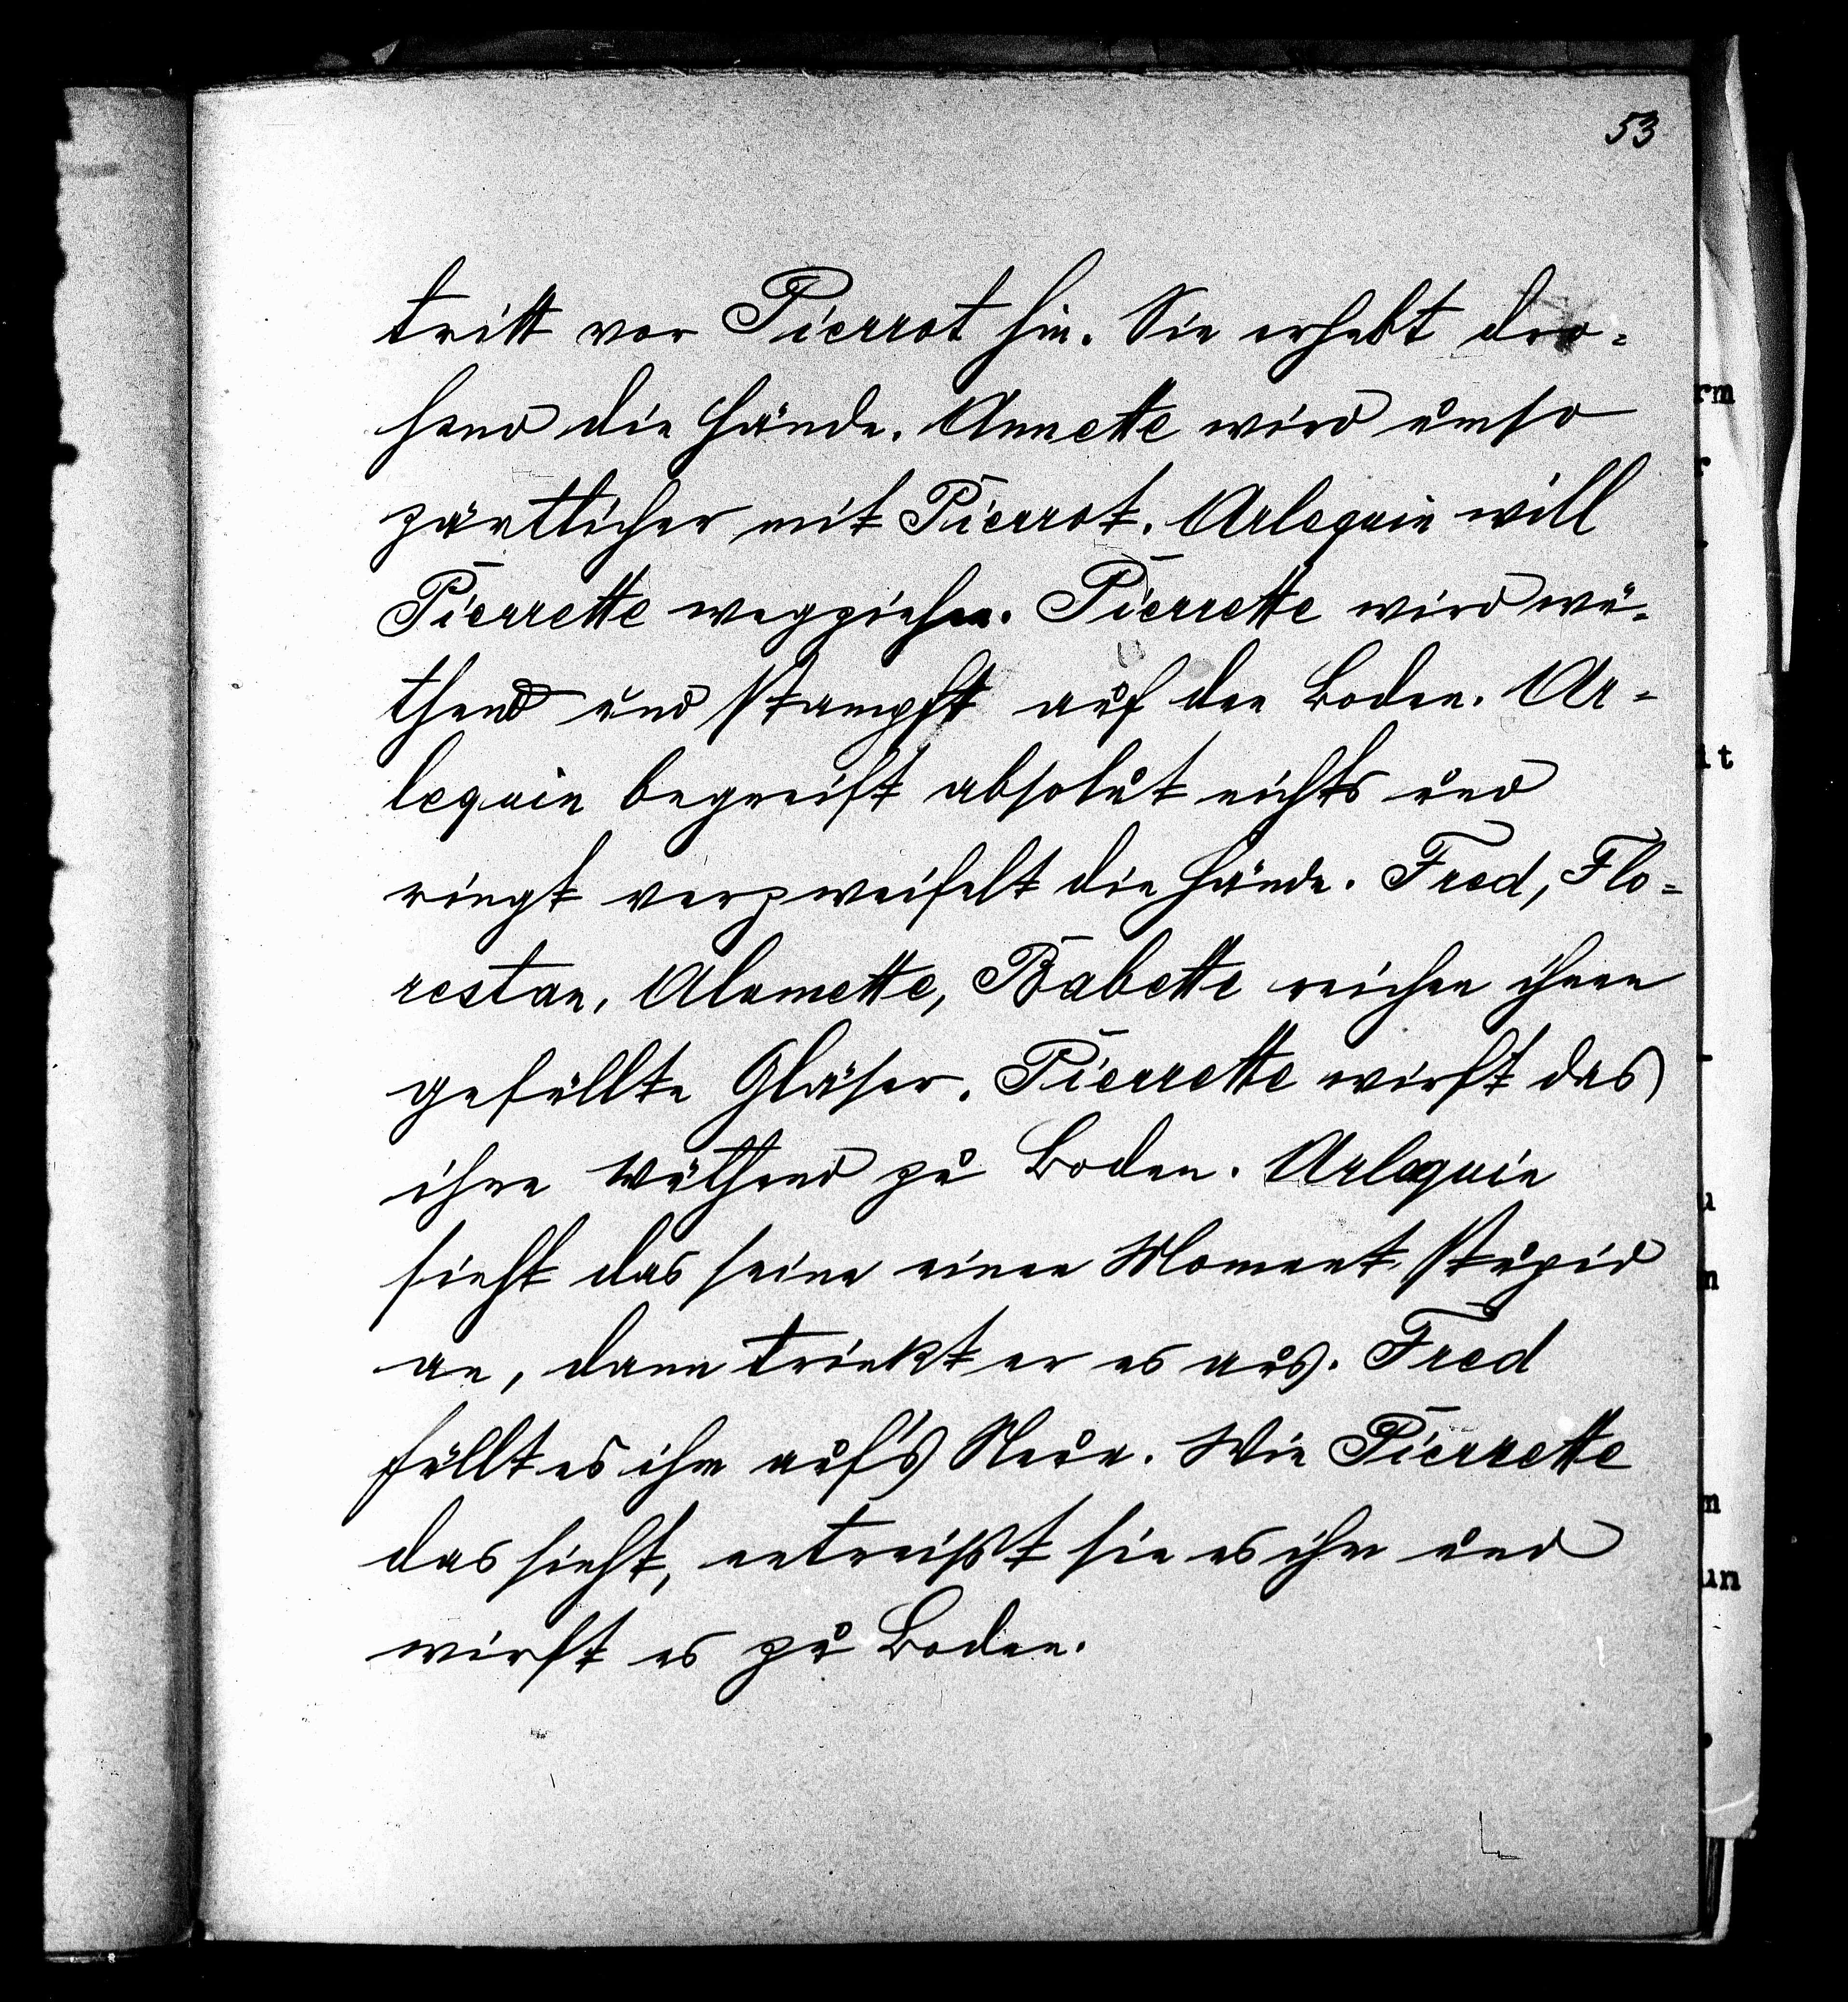 53
tritt vor Pierrot hin. Sie erhebt dro=
hend die Hände. Annette wird umso
zärtlicher mit Pierrot. Arlequin will
Pierrette wegziehen. Pierrette wird wü-
thend und stampft auf den Boden. Ar=
lequin begreift absolut nichts und
ringt verzweifelt die Hände. Fred, Flo=
restan, Alumette, Babette reichen ihnen
gefüllte Gläser. Pierrette wirft das
ihre wüthend zu Boden. Arlequin
sieht das seine einen Moment stupid
an, dann trinkt er es aus. Fred
füllt es ihm auf's Neue. Wie Pierrette
das sieht, entreißt sie es ihm und
wirft es zu Boden.
rm
it
un